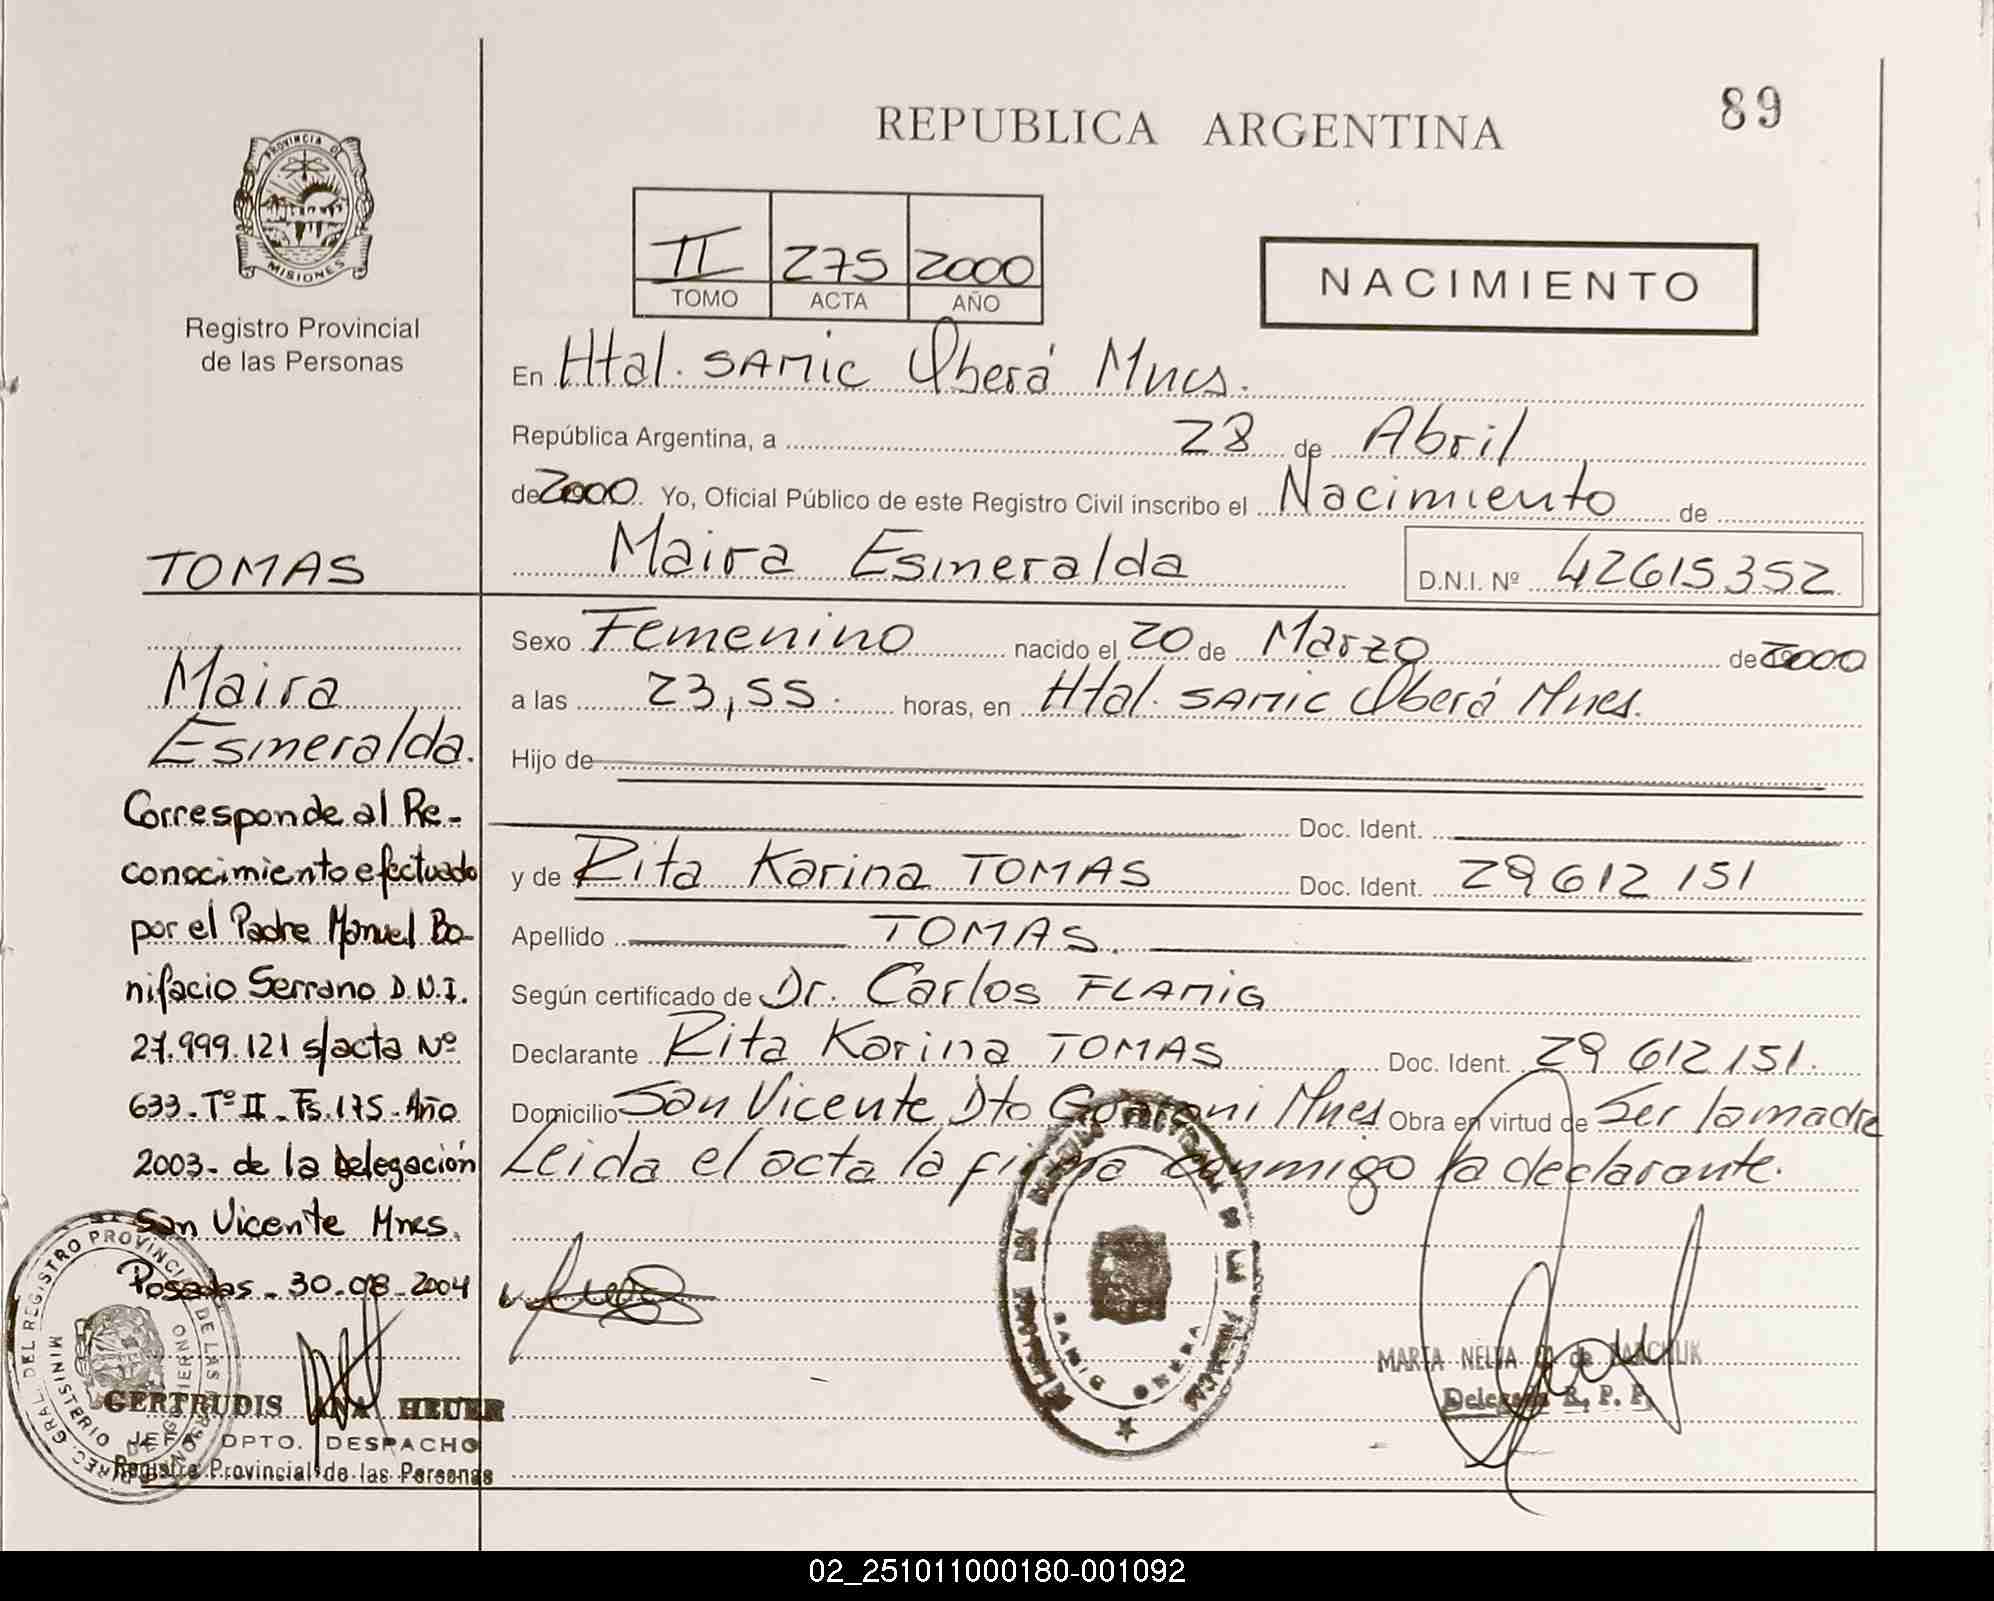 REPUBLICA ARGENTINA
89
PROVINCIA DE
MISIONES
Registro Provincial
de las Personas
II 275 2000
TOMO ACTA AÑO
NACIMIENTO
En Htal. SAMIC Oberá Mnes.
República Argentina, a 28 de Abril
de 2000. Yo, Oficial Público de este Registro Civil inscribo el Nacimiento de
Maira Esmeralda D.N.I. Nº 42615352
Sexo Femenino nacido el 20 de Marzo de 2000
a las 23,55. horas, en Htal. SAMIC Oberá Mnes.
Hijo de
Doc. Ident.
y de Rita Karina TOMAS Doc. Ident. 29 612 151
Apellido TOMAS.
Según certificado de Dr. Carlos FLAMIG
Declarante Rita Karina TOMAS Doc. Ident. 29 612 151.
Domicilio San Vicente Dto Guarani Mnes Obra en virtud de Ser la madre
Leida el acta la firma conmigo la declarante.
TOMAS
Maira
Esmeralda.
Corresponde al Re-
conocimiento efectuado
por el Padre Manuel Bo-
nifacio Serrano D.N.I.
27.999.121 s/acta Nº
633. Tº II. Fs. 175. Año
2003. de la Delegación
San Vicente Mnes.
Posadas. 30.08.2004
GERTRUDIS ANA HEUER
JEFA DPTO. DESPACHO
Registro Provincial de las Personas
DIREC. GRAL. DEL REGISTRO PROVINCIAL DE LAS PERSONAS
MINISTERIO DE GOBIERNO
SAMIC OBERA
MARTA NELVA de
Delegada R. P. P.
02_251011000180-001092